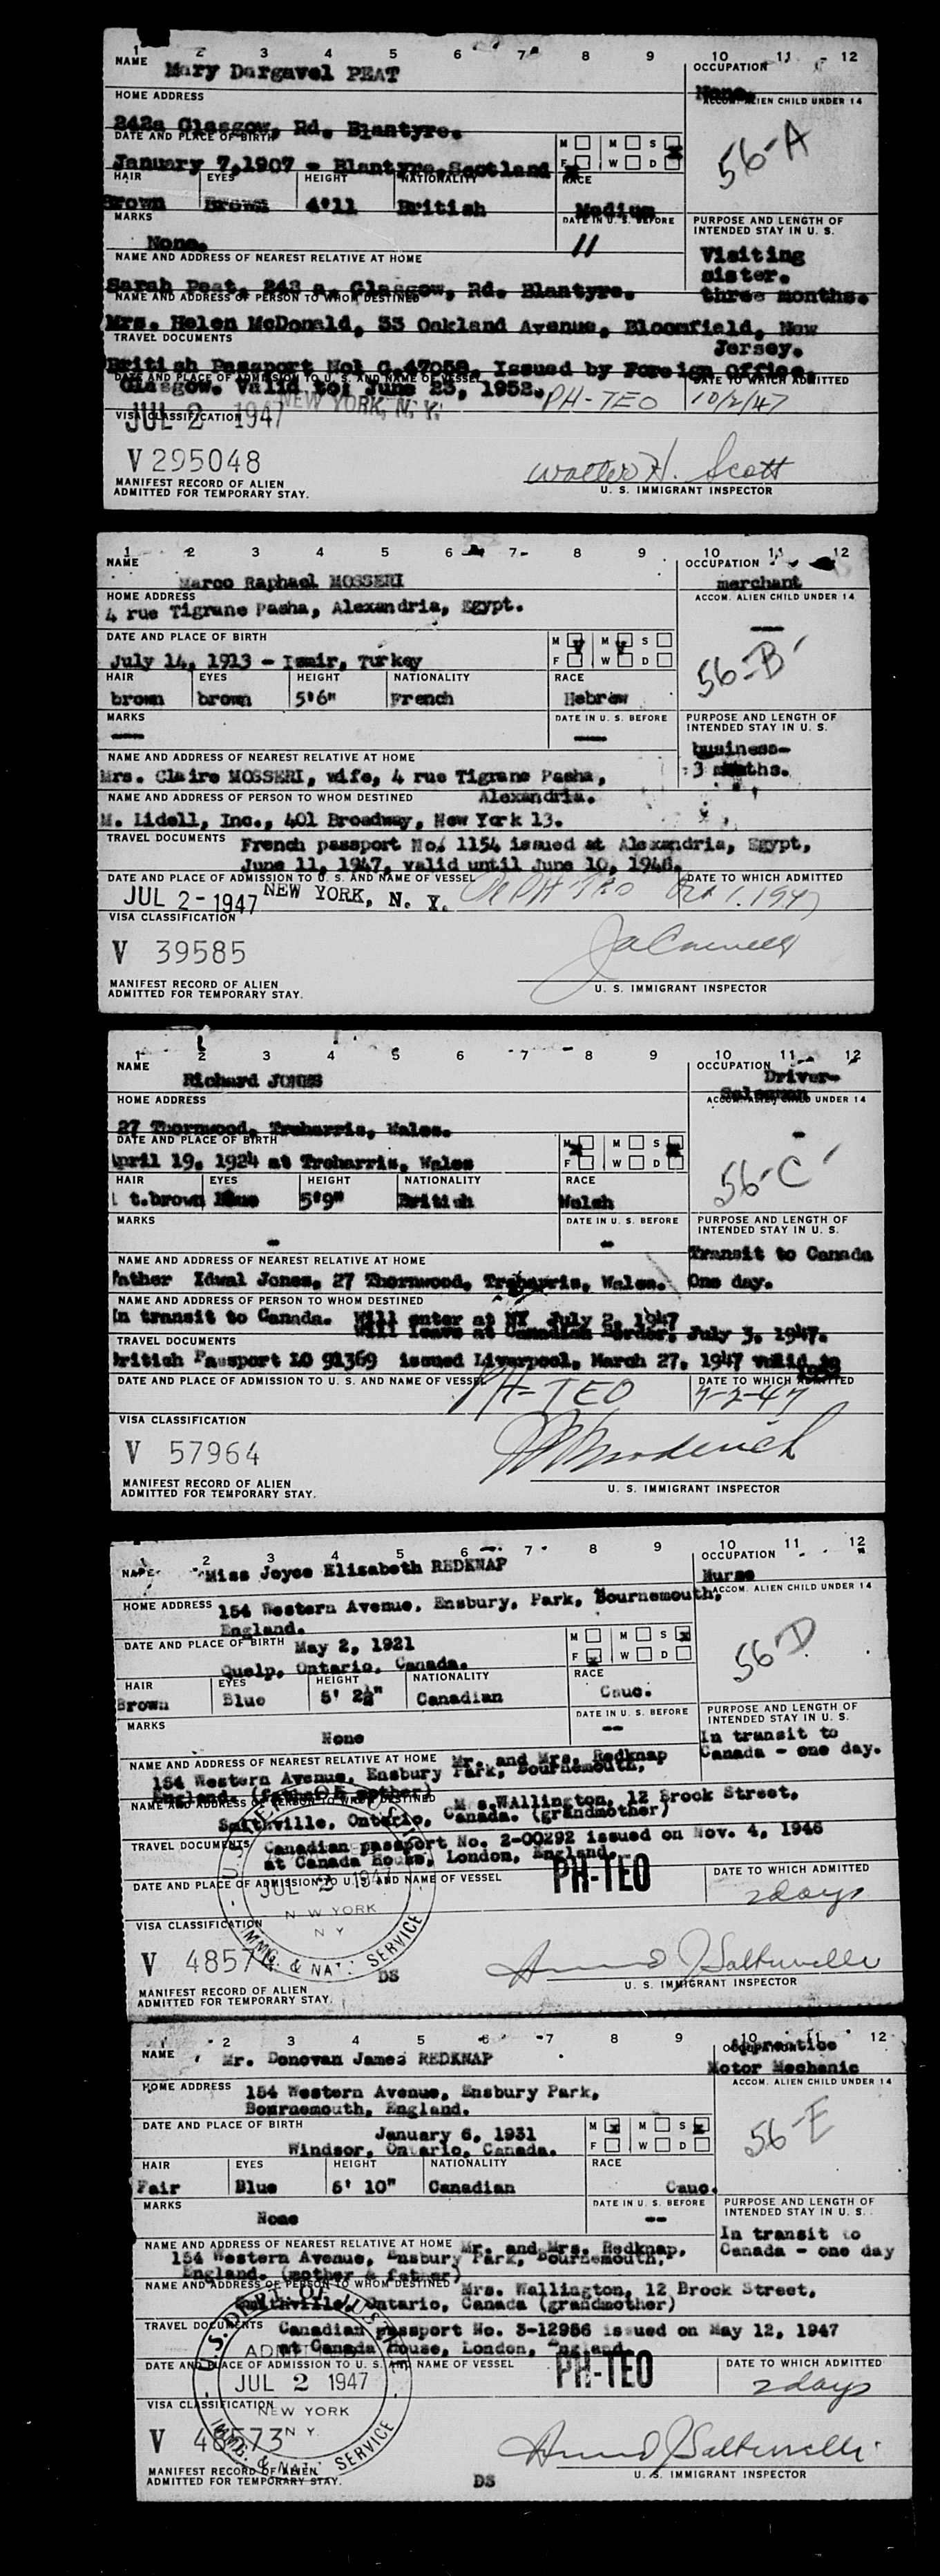 1 2 3 4 5 6 7 8 9 10 11 12
NAME Mary Dargavel PEAT
OCCUPATION None.
HOME ADDRESS
ACCOM. ALIEN CHILD UNDER 14
242a Glasgow, Rd. Blantyre.
56-A
DATE AND PLACE OF BIRTH
M M S
F W D
January 7,1907 - Blantyre,Scotland
HAIR EYES HEIGHT NATIONALITY RACE
Brown Brown 4'11 British Medium
MARKS DATE IN U. S. BEFORE PURPOSE AND LENGTH OF
INTENDED STAY IN U. S.
None. 11
Visiting
sister.
three months.
NAME AND ADDRESS OF NEAREST RELATIVE AT HOME
Sarah Peat, 242 a. Glasgow, Rd. Blantyre.
NAME AND ADDRESS OF PERSON TO WHOM DESTINED
Mrs. Helen McDonald, 33 Oakland Avenue, Bloomfield, New
Jersey.
TRAVEL DOCUMENTS
British Passport No: C.47058. Issued by Foreign Office.
Glasgow. Valid to: June 23, 1952.
DATE AND PLACE OF ADMISSION TO U. S. AND NAME OF VESSEL DATE TO WHICH ADMITTED
JUL 2 1947 NEW YORK, N. Y. PH-TEO 10/2/47
VISA CLASSIFICATION
V 295048 Walter H. Scott
MANIFEST RECORD OF ALIEN
ADMITTED FOR TEMPORARY STAY.
U. S. IMMIGRANT INSPECTOR
1 2 3 4 5 6 7 8 9 10 11 12
NAME Marco Raphael MOSSERI
OCCUPATION merchant
HOME ADDRESS
ACCOM. ALIEN CHILD UNDER 14
4 rue Tigrane Pasha, Alexandria, Egypt.
56-B
DATE AND PLACE OF BIRTH
M M S
F W D
July 14, 1913 - Izmir, Turkey
HAIR EYES HEIGHT NATIONALITY RACE
brown brown 5'6" French Hebrew
MARKS DATE IN U. S. BEFORE PURPOSE AND LENGTH OF
INTENDED STAY IN U. S.
business-
3 months.
NAME AND ADDRESS OF NEAREST RELATIVE AT HOME
Mrs. Claire MOSSERI, wife, 4 rue Tigrane Pasha,
Alexandria.
NAME AND ADDRESS OF PERSON TO WHOM DESTINED
M. Lidell, Inc., 401 Broadway, New York 13.
TRAVEL DOCUMENTS French passport No. 1154 issued at Alexandria, Egypt,
June 11, 1947, valid until June 10, 1948.
DATE AND PLACE OF ADMISSION TO U. S. AND NAME OF VESSEL DATE TO WHICH ADMITTED
JUL 2 - 1947 NEW YORK, N. Y. PH-TEO Oct 1, 1947
VISA CLASSIFICATION
V 39585
MANIFEST RECORD OF ALIEN
ADMITTED FOR TEMPORARY STAY.
U. S. IMMIGRANT INSPECTOR
1 2 3 4 5 6 7 8 9 10 11 12
NAME Richard JONES
OCCUPATION Driver-
Salesman
HOME ADDRESS
ACCOM. ALIEN CHILD UNDER 14
27 Thornwood, Treharris, Wales.
56-C
DATE AND PLACE OF BIRTH
M M S
F W D
April 19, 1924 at Treharris, Wales
HAIR EYES HEIGHT NATIONALITY RACE
t.brown Blue 5'9" British Welsh
MARKS DATE IN U. S. BEFORE PURPOSE AND LENGTH OF
INTENDED STAY IN U. S.
- -
Transit to Canada
One day.
NAME AND ADDRESS OF NEAREST RELATIVE AT HOME
Father Idwal Jones, 27 Thornwood, Treharris, Wales.
NAME AND ADDRESS OF PERSON TO WHOM DESTINED
In transit to Canada. Will enter at NY July 2, 1947
Will leave at Canadian Border. July 3, 1947.
TRAVEL DOCUMENTS
British Passport LO 91369 issued Liverpool, March 27, 1947 valid to
DATE AND PLACE OF ADMISSION TO U. S. AND NAME OF VESSEL DATE TO WHICH ADMITTED
PH-TEO 7-2-47
VISA CLASSIFICATION
V 57964
MANIFEST RECORD OF ALIEN
ADMITTED FOR TEMPORARY STAY.
U. S. IMMIGRANT INSPECTOR
1 2 3 4 5 6 7 8 9 10 11 12
NAME Miss Joyce Elizabeth REDKNAP
OCCUPATION
Nurse
HOME ADDRESS 154 Western Avenue, Ensbury, Park, Bournemouth,
England.
ACCOM. ALIEN CHILD UNDER 14
56-D
DATE AND PLACE OF BIRTH May 2, 1921
Guelp, Ontario, Canada.
M M S
F W D
HAIR EYES HEIGHT NATIONALITY RACE
Brown Blue 5' 2½" Canadian Cauc.
MARKS DATE IN U. S. BEFORE PURPOSE AND LENGTH OF
INTENDED STAY IN U. S.
None --
In transit to
Canada - one day.
NAME AND ADDRESS OF NEAREST RELATIVE AT HOME Mr. and Mrs. Redknap
154 Western Avenue, Ensbury Park, Bournemouth,
England. (father & mother)
NAME AND ADDRESS OF PERSON TO WHOM DESTINED Mrs. Wallington, 12 Brock Street,
Smithville, Ontario, Canada. (grandmother)
TRAVEL DOCUMENTS Canadian passport No. 2-00292 issued on Nov. 4, 1946
at Canada House, London, England.
DATE AND PLACE OF ADMISSION TO U. S. AND NAME OF VESSEL PH-TEO DATE TO WHICH ADMITTED
JUL 2 1947 2 days
NEW YORK
N Y
IMMG. & NAT. SERVICE
VISA CLASSIFICATION
V 48574
DS
MANIFEST RECORD OF ALIEN
ADMITTED FOR TEMPORARY STAY.
U. S. IMMIGRANT INSPECTOR
2 3 4 5 6 7 8 9 10 11 12
NAME Mr. Donovan James REDKNAP
OCCUPATION Apprentice
Motor Mechanic
HOME ADDRESS 154 Western Avenue, Ensbury Park,
Bournemouth, England.
ACCOM. ALIEN CHILD UNDER 14
56-E
DATE AND PLACE OF BIRTH
January 6, 1931
Windsor, Ontario, Canada.
M M S
F W D
HAIR EYES HEIGHT NATIONALITY RACE
Fair Blue 5' 10" Canadian Cauc.
MARKS DATE IN U. S. BEFORE PURPOSE AND LENGTH OF
INTENDED STAY IN U. S.
None --
In transit to
Canada - one day
NAME AND ADDRESS OF NEAREST RELATIVE AT HOME Mr. and Mrs. Redknap,
154 Western Avenue, Ensbury Park, Bournemouth,
England. (mother & father)
NAME AND ADDRESS OF PERSON TO WHOM DESTINED Mrs. Wallington, 12 Brock Street,
Smithville, Ontario, Canada (grandmother)
TRAVEL DOCUMENTS Canadian passport No. 3-12986 issued on May 12, 1947
at Canada House, London, England.
DATE AND PLACE OF ADMISSION TO U. S. AND NAME OF VESSEL PH-TEO DATE TO WHICH ADMITTED
U.S. DEPT. OF JUSTICE
ADMITTED
JUL 2 1947 2 days
NEW YORK
N Y.
IMMG. & NAT. SERVICE
VISA CLASSIFICATION
V 48573
MANIFEST RECORD OF ALIEN
ADMITTED FOR TEMPORARY STAY.
DS
U. S. IMMIGRANT INSPECTOR